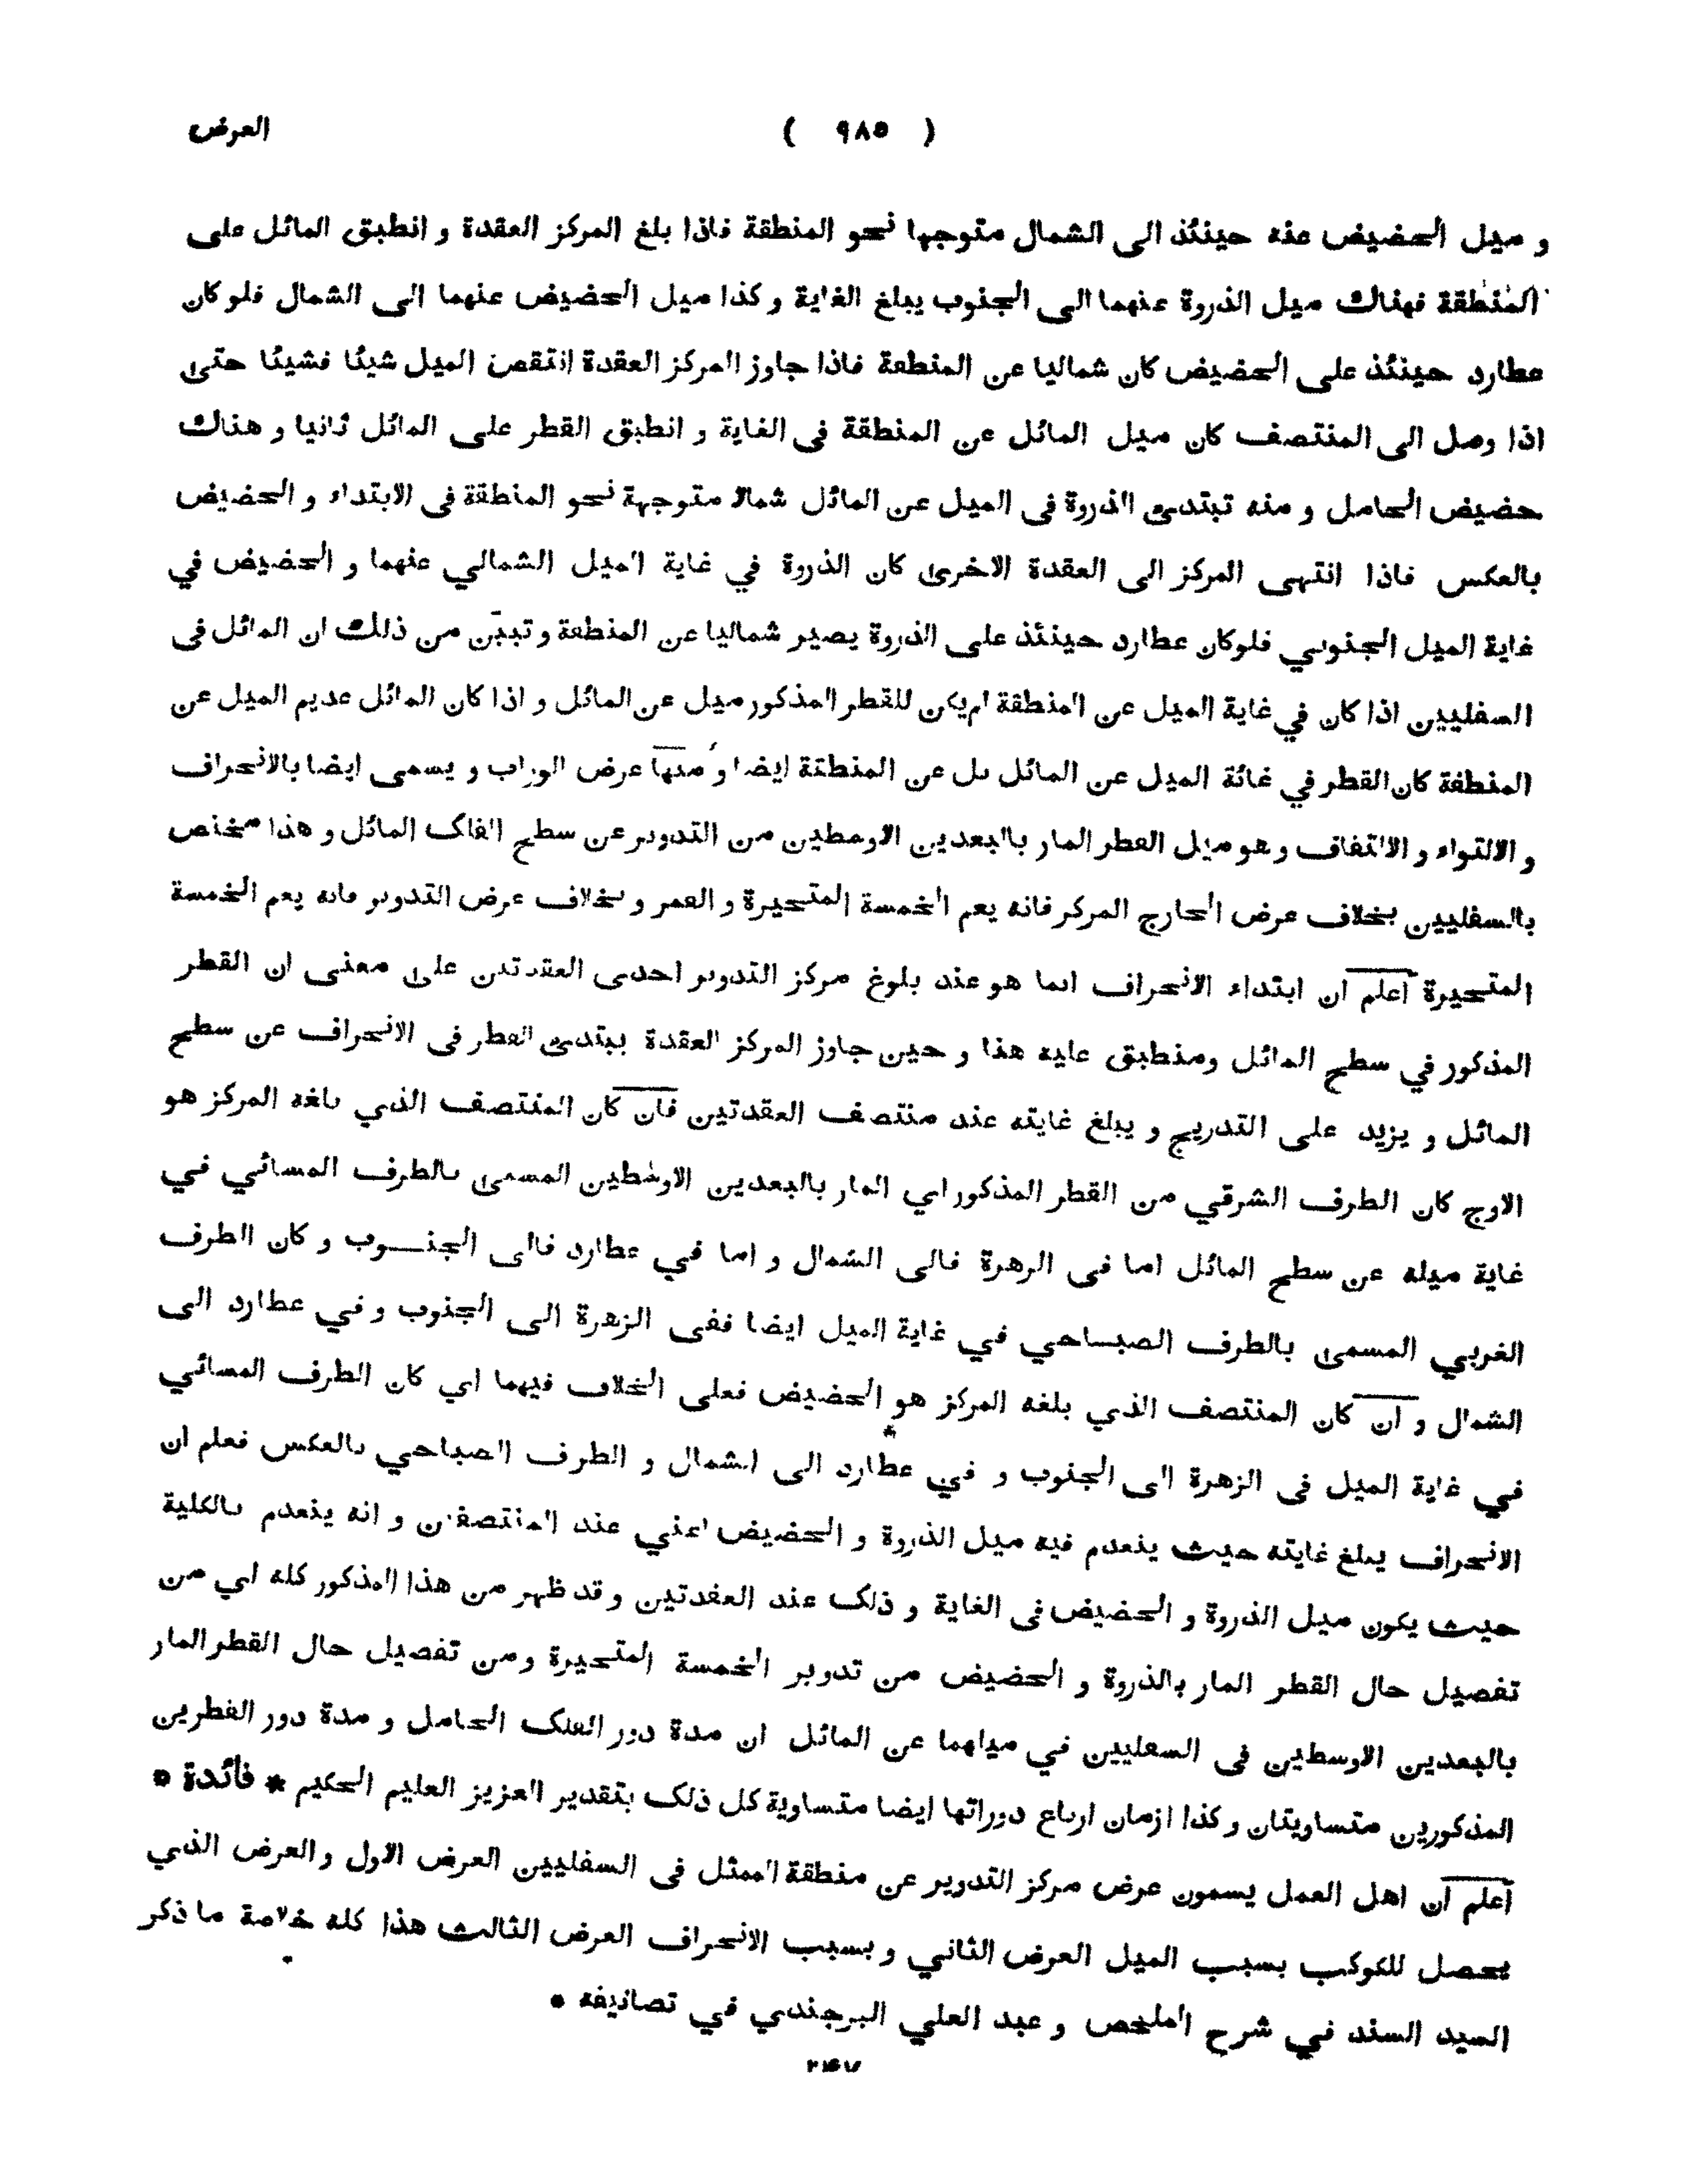 العرض
( ٩٨٥ )
و ميل الحضيض عنه حينئذ الى الشمال متوجها نحو المنطقة فاذا بلغ المركز العقدة و انطبق المائل على
المنطقة فهناك ميل الذروة عنهما الى الجنوب يبلغ الغاية و كذا ميل الحضيض عنهما الى الشمال فلو كان
عطارد حينئذ على الحضيض كان شماليا عن المنطقة فاذا جاوز المركز العقدة انتقص الميل شيئا فشيئا حتى
اذا وصل الى المنتصف كان ميل المائل عن المنطقة فى الغاية و انطبق القطر على المائل ثانيا و هناك
حضيض الحامل و منه تبتدى الذروة فى الميل عن المائل شمالا متوجهة نحو المنطقة فى الابتداء و الحضيض
بالعكس فاذا انتهى المركز الى العقدة الاخرى كان الذروة في غاية الميل الشمالي عنهما و الحضيض في
غاية الميل الجنوبي فلوكان عطارد حينئذ على الذروة يصير شماليا عن المنطقة و تبيّن من ذلك ان المائل فى
السفليين اذا كان في غاية الميل عن المنطقة لم يكن للقطر المذكور ميل عن المائل و اذا كان المائل عديم الميل عن
المنطقة كان القطر في غاية الميل عن المائل بل عن المنطقة ايضا و منها عرض الوراب و يسمى ايضا بالانحراف
و الالتواء و الالتفاف و هو ميل القطر المار بالبعدين الاوسطين من التدوير عن سطح الفلك المائل و هذا مختص
بالسفليين بخلاف عرض الخارج المركز فانه يعم الخمسة المتحيرة و القمر و بخلاف عرض التدوير فانه يعم الخمسة
المتحيرة اعلم ان ابتداء الانحراف انما هو عند بلوغ مركز التدوير احدى العقدتين على معنى ان القطر
المذكور في سطح المائل ومنطبق عليه هذا و حين جاوز المركز العقدة يبتدى القطر فى الانحراف عن سطح
المائل و يزيد على التدريج و يبلغ غايته عند منتصف العقدتين فان كان المنتصف الذي بلغه المركز هو
الاوج كان الطرف الشرقي من القطر المذكور اي المار بالبعدين الاوسطين المسمى بالطرف المسائي في
غاية ميله عن سطح المائل اما فى الزهرة فالى الشمال و اما في عطارد فالى الجنوب و كان الطرف
الغربي المسمى بالطرف الصباحي في غاية الميل ايضا ففى الزهرة الى الجنوب و في عطارد الى
الشمال و ان كان المنتصف الذي بلغه المركز هو الحضيض فعلى الخلاف فيهما اي كان الطرف المسائي
في غاية الميل فى الزهرة الى الجنوب و في عطارد الى الشمال و الطرف الصباحي بالعكس فعلم ان
الانحراف يبلغ غايته حيث ينعدم فيه ميل الذروة و الحضيض اعني عند المنتصفين و انه ينعدم بالكلية
حيث يكون ميل الذروة و الحضيض فى الغاية و ذلك عند العقدتين و قد ظهر من هذا المذكور كله اي من
تفصيل حال القطر المار بالذروة و الحضيض من تدوير الخمسة المتحيرة ومن تفصيل حال القطر المار
بالبعدين الاوسطين فى السفليين في ميلهما عن المائل ان مدة دور الفلك الحامل و مدة دور القطرين
المذكورين متساويتان و كذا ازمان ارباع دوراتها ايضا متساوية كل ذلك بتقدير العزيز العليم الحكيم * فائدة *
اعلم ان اهل العمل يسمون عرض مركز التدوير عن منطقة الممثل فى السفليين العرض الاول و العرض الذي
يحصل للكوكب بسبب الميل العرض الثاني و بسبب الانحراف العرض الثالث هذا كله خلاصة ما ذكر
السيد السند في شرح الملخص و عبد العلي البرجندي في تصانيفه *